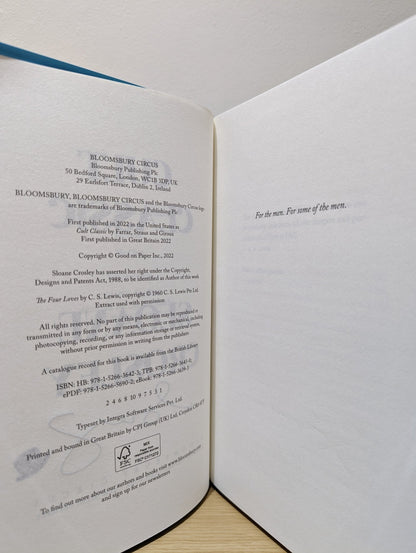 BLOOMSBURY CIRCUS
Bloomsbury Publishing Plc
50 Bedford Square, London, WC1B 3DP, UK
29 Earlsfort Terrace, Dublin 2, Ireland
BLOOMSBURY, BLOOMSBURY CIRCUS and the Bloomsbury Circus logo
are trademarks of Bloomsbury Publishing Plc
First published in 2022 in the United States as
Cult Classic by Farrar, Straus and Giroux
First published in Great Britain 2022
Copyright © Good on Paper Inc., 2022
Sloane Crosley has asserted her right under the Copyright,
Designs and Patents Act, 1988, to be identified as Author of this work
The Four Loves by C. S. Lewis, copyright © 1960 C. S. Lewis Pte Ltd.
Extract used with permission
All rights reserved. No part of this publication may be reproduced or
transmitted in any form or by any means, electronic or mechanical, including
photocopying, recording, or any information storage or retrieval system,
without prior permission in writing from the publishers
A catalogue record for this book is available from the British Library
ISBN: HB: 978-1-5266-3642-3; TPB: 978-1-5266-
ePDF: 978-1-5266-5690-2; eBook: 978-1-5266-
2 4 6 8 10 9 7 5 3 1
Typeset by Integra Software Services Pvt. Ltd.
Printed and bound in Great Britain by CPI Group (UK) Ltd, Croydon CR0 4YY
FSC
MIX
To find out more about our authors and books visit www.bloomsbury.com
and sign up for our newsletters
For the men. For some of the men.